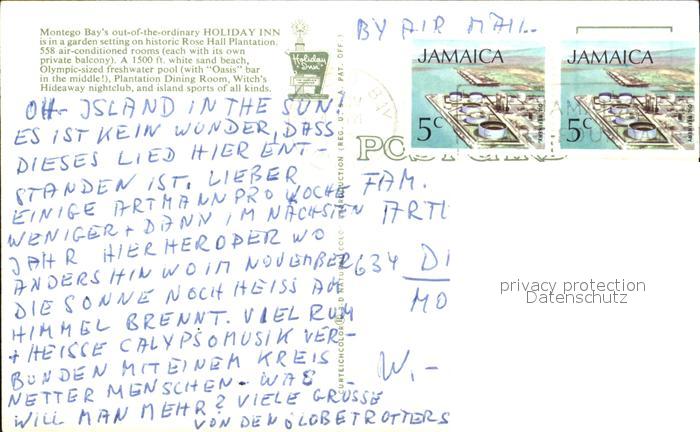 Montego Bay's out-of-the-ordinary HOLIDAY INN
is in a garden setting on historic Rose Hall Plantation.
558 air-conditioned rooms (each with its own
private balcony). A 1500 ft. white sand beach,
Olympic-sized freshwater pool (with "Oasis" bar
in the middle!), Plantation Dining Room, Witch's
Hideaway nightclub, and island sports of all kinds.
Holiday Inn
BY AIR MAIL
JAMAICA
5c
JAMAICA
5c
OH- ISLAND IN THE SUN.
ES IST KEIN WUNDER, DASS
DIESES LIED HIER ENT-
STANDEN IST. LIEBER
EINIGE ARTMANN PRO WOCHE
WENIGER + DANN IM NÄCHSTEN
JAHR HIERHER ODER WO
ANDERS HIN WO IM NOVEMBER
DIE SONNE NOCH HEISS AM
HIMMEL BRENNT. VIEL RUM
+ HEISSE CALYPSOMUSIK VER-
BUNDEN MIT EINEM KREIS
NETTER MENSCHEN. WAS
WILL MAN MEHR? VIELE GRÜSSE
VON DEN GLOBETROTTERS
W.-
FAM.
ARTI
634 DI
MO
privacy protection
Datenschutz